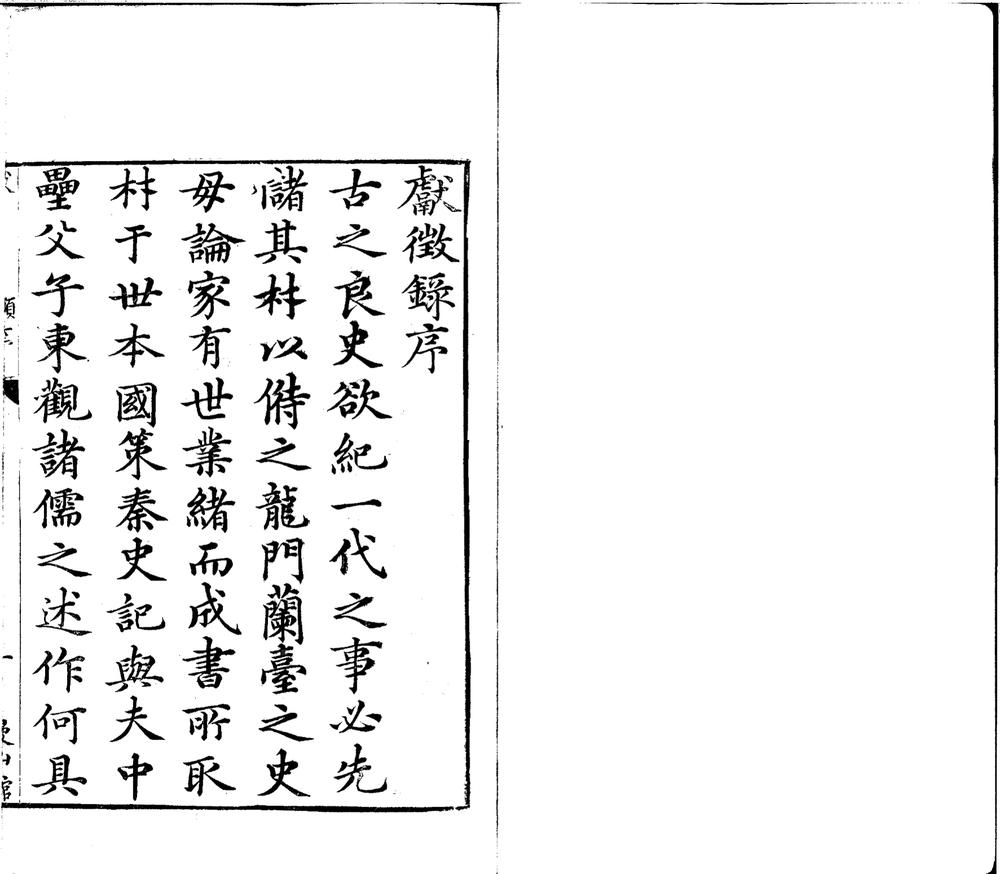 獻徵錄序
古之良史欲紀一代之事必先
儲其材以偫之龍門蘭臺之史
毋論家有世業緒而成書所取
材于世本國策秦史記與夫中
壘父子東觀諸儒之述作何具